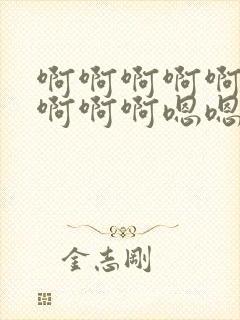 啊啊啊啊啊
啊啊啊嗯嗯
金志刚